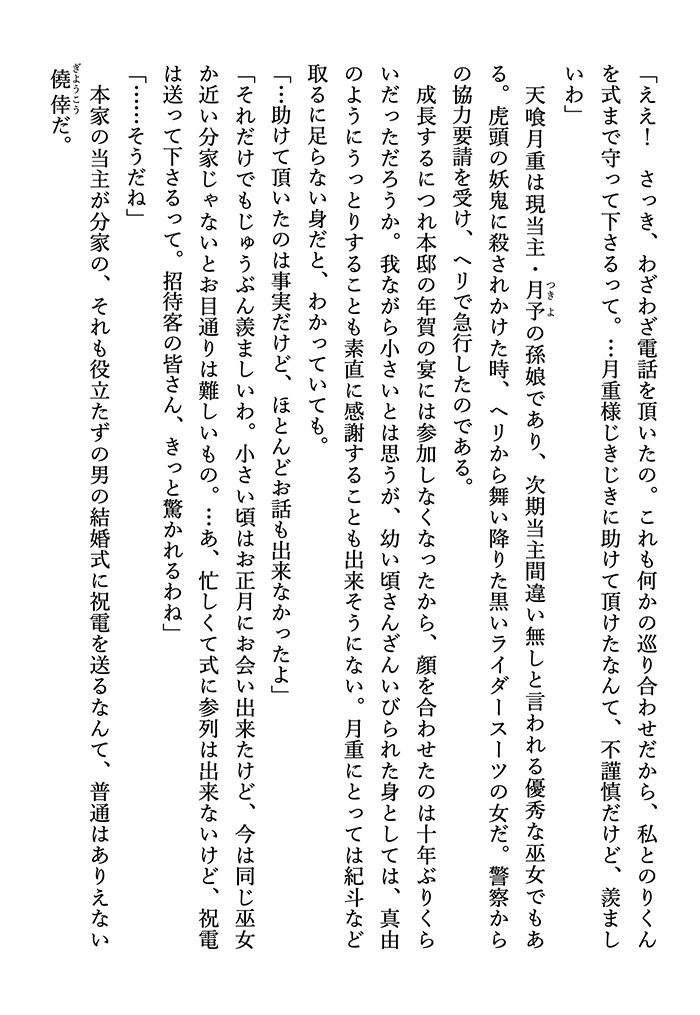 「ええ！　さっき、わざわざ電話を頂いたの。これも何かの巡り合わせだから、私とのりくん
を式まで守って下さるって。…月重様じきじきに助けて頂けたなんて、不謹慎だけど、羨まし
いわ」
　天喰月重は現当主・月予の孫娘であり、次期当主間違い無しと言われる優秀な巫女でもあ
る。虎頭の妖鬼に殺されかけた時、ヘリから舞い降りた黒いライダースーツの女だ。警察から
の協力要請を受け、ヘリで急行したのである。
　成長するにつれ本邸の年賀の宴には参加しなくなったから、顔を合わせたのは十年ぶりくら
いだっただろうか。我ながら小さいとは思うが、幼い頃さんざんいびられた身としては、真由
のようにうっとりすることも素直に感謝することも出来そうにない。月重にとっては紀斗など
取るに足らない身だと、わかっていても。
「…助けて頂いたのは事実だけど、ほとんどお話も出来なかったよ」
「それだけでもじゅうぶん羨ましいわ。小さい頃はお正月にお会い出来たけど、今は同じ巫女
か近い分家じゃないとお目通りは難しいもの。…あ、忙しくて式に参列は出来ないけど、祝電
は送って下さるって。招待客の皆さん、きっと驚かれるわね」
「……そうだね」
　本家の当主が分家の、それも役立たずの男の結婚式に祝電を送るなんて、普通はありえない
僥倖だ。
つきよ
ぎようこう